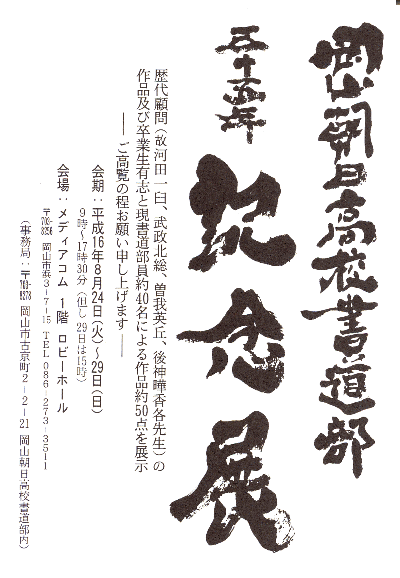 岡山朝日高校書道部
五十五年
記念展
歴代顧問（故河田一臼、武政北総、曽我英丘、後神曄香各先生）の
作品及び卒業生有志と現書道部員約40名による作品約50点を展示
――ご高覧の程お願い申し上げます――
会期：平成16年8月24日（火）〜29日（日）
9時〜17時30分（但し29日は15時）
会場：メディアコム 1階 ロビーホール
〒700-8258 岡山市浜3-7-15 TEL 086-273-3511
（事務局：〒703-8278 岡山市古京町2-2-21 岡山朝日高校書道部内）